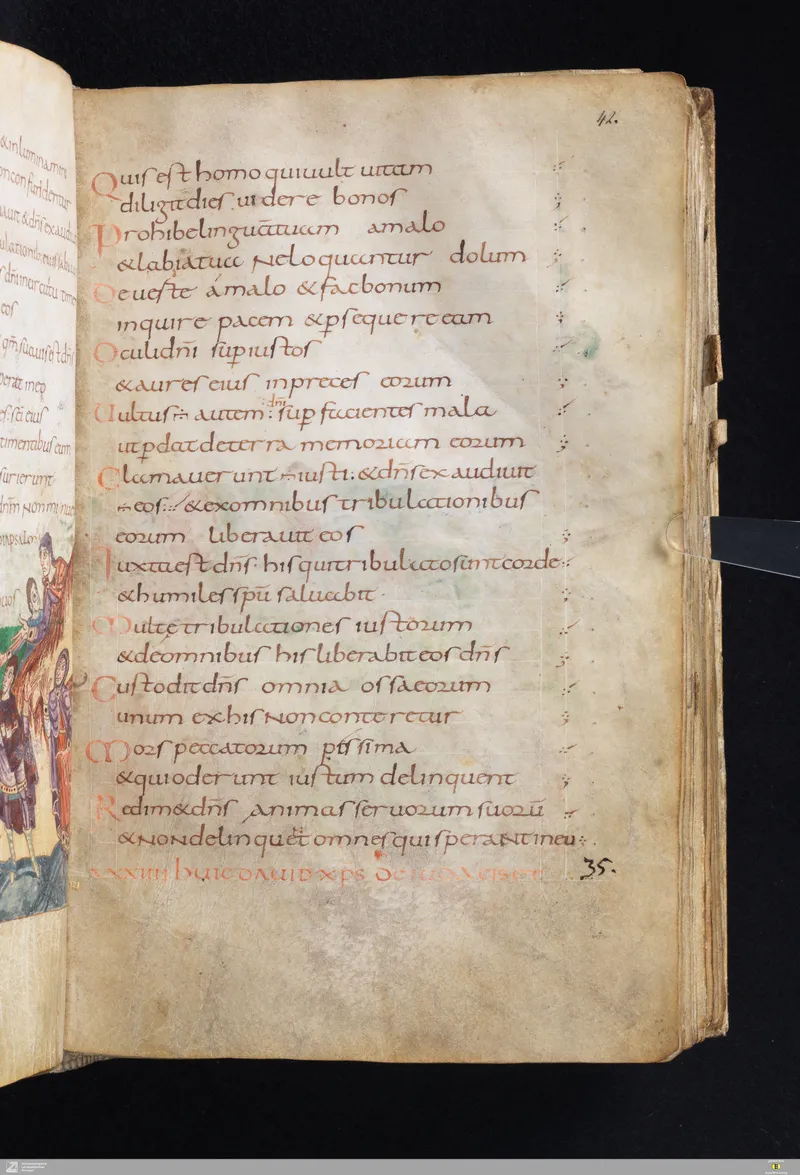 & inluminamini
42.
Quis est homo qui uult uitam
diligit dies uidere bonos
Prohibe linguā tuam a malo
& labia tua ne loquantur dolum
Deuerte a malo & fac bonum
inquire pacem & ꝑsequere eam
Oculi dn̄i sup̄ iustos
& aures eius in preces eorum
Uultus ÷ autem : dn̄i sup̄ facientes mala
ut ꝑdat de terra memoriam eorum
Clamauerunt ÷ iusti : & dn̄s exaudiuit
÷ eos : & ex omnibus tribulationibus
eorum liberauit eos
Iuxta est dn̄s his qui tribulato sunt corde
& humiles spū saluabit
Multę tribulationes iustorum
& de omnibus his liberabit eos dn̄s
Custodit dn̄s omnia ossa eorum
unum ex his non conteretur
Mors peccatorum pessima
& qui oderunt iustum delinquent
Redim& dn̄s animas seruorum suorū
& non delinquēt omnes qui sperant in eu
XXXIIII HUIC DAUID XPS DE IUDAEIS 35.